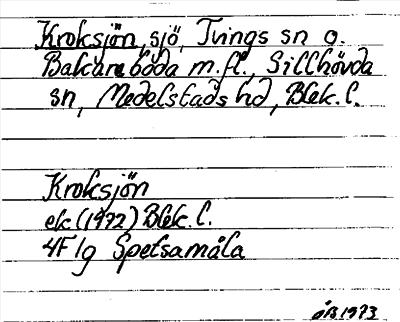 Kroksjön, sjö, Tvings sn o.
Bakareboda m.fl., Sillhövda
sn, Medelstads hd, Blek. l.
Kroksjön
ek (1972) Blek. l.
4F 1g Spetsamåla
ÖB 1973